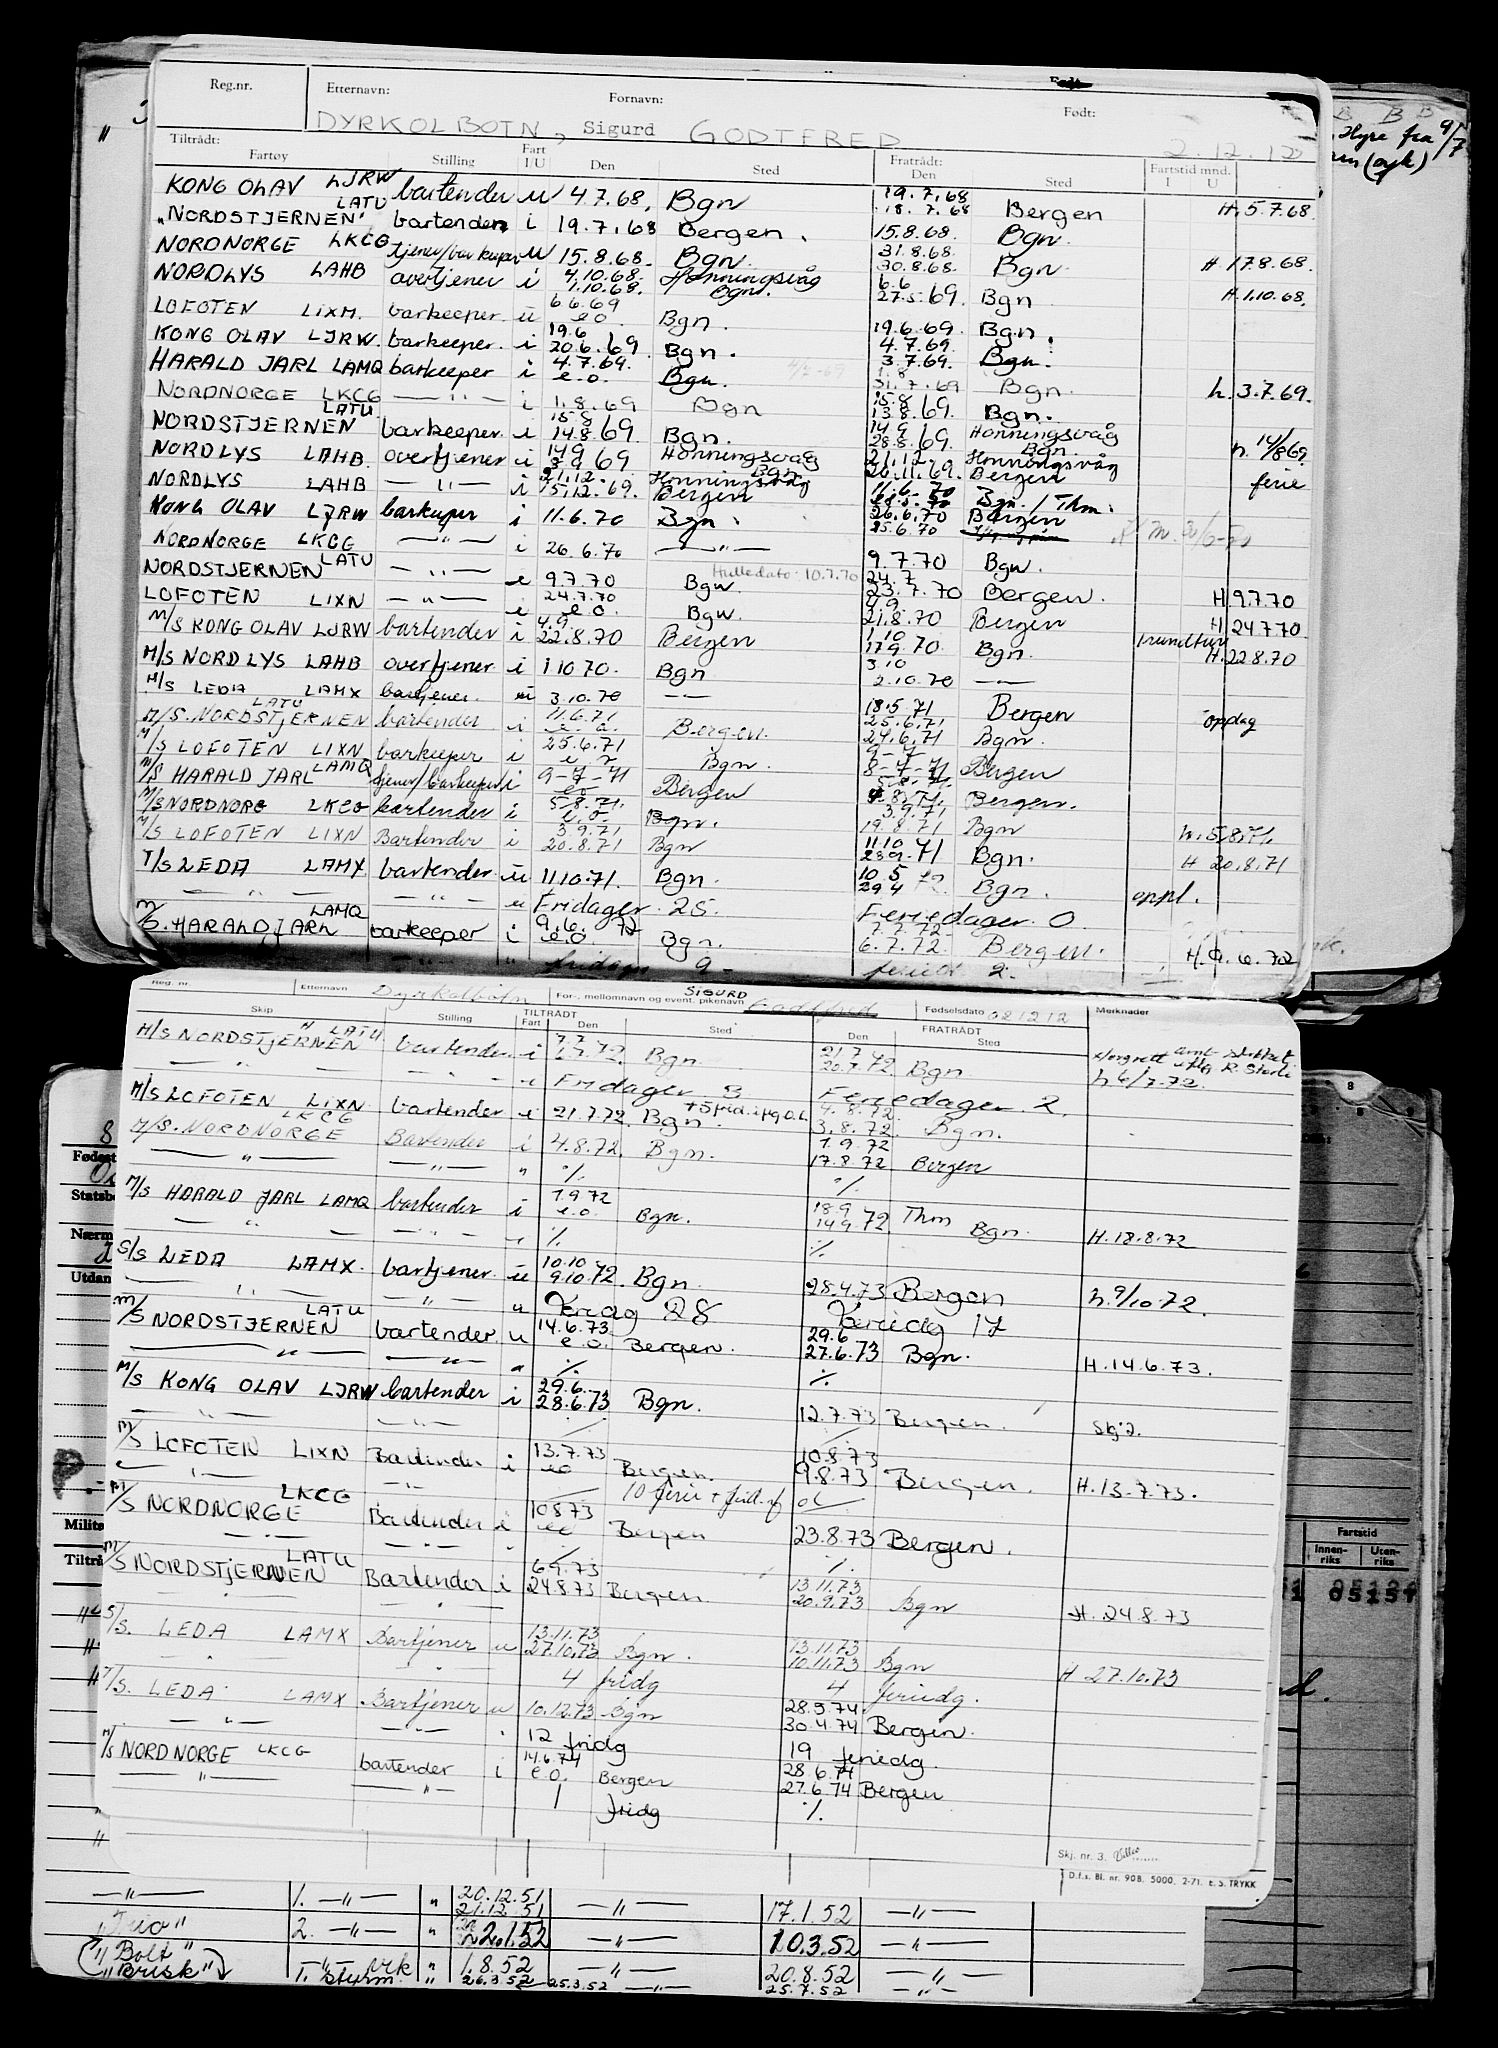 Reg.nr. Etternavn: Fornavn: Født:
DYRKOLBOTN, Sigurd GODTFRED 2.12.12
Tiltrådt: Fratrådt: Fartstid mnd.
Fartøy Stilling Fart I/U Den Sted Den Sted I U
KONG OLAV LJRW bartender u 4.7.68. Bgn 19.7.68 18.7.68 Bergen H. 5.7.68.
"NORDSTJERNEN" LATU bartender i 19.7.68 Bergen. 15.8.68. Bgn.
NORDNORGE LKCG tjener/barkeeper u 15.8.68. Bgn. 31.8.68. 30.8.68. Bgn. H. 17.8.68.
NORDLYS LAHB overtjener i 4.10.68. 1.10.68. Honningsvåg Bgn. 6.6 27.5.69. Bgn H. 1.10.68.
LOFOTEN LIXM. barkeeper u 6.6.69 e.o. Bgn. 19.6.69. Bgn.
KONG OLAV LJRW. barkeeper. i 19.6 20.6.69. Bgn. 4.7.69. 3.7.69. Bgn.
HARALD JARL LAMQ barkeeper i 4.7.69. e.o. Bgn. 1.8 31.7.69 Bgn. h. 3.7.69.
NORDNORGE LKCG — " — i 1.8.69 Bgn 15.8 13.8.69. Bgn.
NORDSTJERNEN LATU barkeeper. i 15.8 14.8.69 Bgn. 14.9 28.8.69. Honningsvåg Bgn. h. 14/8 69.
NORDLYS LAHB. overtjener i 14.9 3.9.69 Honningsvåg Bgn. 21.12. 26.11.69. Honningsvåg Bergen ferie
NORDLYS LAHB — " — i 21.12. 15.12.69. Honningsvåg Bergen 11.6-70 Bgn. / Thm.
KONG OLAV LJRW barkeeper i 11.6.70 Bgn. 26.6.70 25.6.70 Bergen
NORDNORGE LKCG — " — i 26.6.70 — " — 9.7.70 Bgn.
NORDSTJERNEN LATU — " — i 9.7.70 Bgn. Hulledato 10.7.70 24.7 23.7.70 Bergen. H 9.7.70
LOFOTEN LIXN — " — i 24.7.70 e.o. Bgn. 4.9. 21.8.70 Bergen H 24.7.70
M/S KONG OLAV LJRW bartender i 4.9. 22.8.70 Bergen 1.10 17.9.70 Bgn. 1 rundtur H. 22.8.70
M/S NORDLYS LAHB overtjener i 1.10.70. Bgn 3.10 2.10.70 — —
M/S LEDA LAMX bartjener. u 3.10.70 — — 18.5.71 Bergen opplag
M/S. NORDSTJERNEN LATU bartender i 11.6.71 e.o. Bergen. 25.6.71 24.6.71 Bgn.
M/S LOFOTEN LIXN barkeeper i 25.6.71 Bgn. 9-7 8-7-71 Bergen
M/S HARALD JARL LAMQ tjener/barkeeper i 9-7-71 eo Bergen Bergen.
M/S NORDNORG LKCG bartender i 5.8.71. e.o. Bgn. 3.9.71 19.8.71 Bgn h. 5.8.71.
M/S LOFOTEN LIXN Bartender i 3.9.71 20.8.71 Bgn 11.10 23.9.71 Bgn. H 20.8.71
T/S LEDA LAMX. bartender u 11.10.71. Bgn. 10.5 29.4 72. Bgn. oppl.
— " — — " — u Fridager. 25. Feriedager. 0
M/S. HARALD JARL LAMQ barkeeper i 9.6.72 e.o. Bgn. 7.7.72. 6.7.72. Bergen. H. 9.6.72
" " fridager 9 - feried 2.
Reg. nr. Etternavn Dyrkolbotn For-, mellomnavn og event. pikenavn SIGURD Godtfred Fødselsdato 021212 Merknader
TILTRÅDT FRATRÅDT
Skip Stilling Fart Den Sted Den Sted
M/S NORDSTJERNEN LATU bartender i 7.7.72. Bgn. 21.7 20.7.72. Bgn h. 6/7.72.
— " — — " — Fridager 8 Feriedager 2.
M/S LOFOTEN LIXN bartender i 21.7.72. Bgn. 4.8.72. 3.8.72. Bgn.
M/S. NORDNORGE LKCG Bartender i 4.8.72. Bgn. 1.9.72 17.8.72 Bergen
— " — — " — " % %
M/S HARALD JARL LAMQ bartender i 1.9.72 e.o. Bgn. 18.9 14.9.72 Thm Bgn. H. 18.8.72
— " — — " — % %
S/S LEDA LAMX. bartjener u 10.10 9.10.72. Bgn. 28.4.73 Bergen h. 9/10.72.
— " — — " — " Feridag 28 Feriedg 17
M/S NORDSTJERNEN LATU bartender u 14.6.73. e.o. Bergen. 29.6 27.6.73 Bgn. H. 14.6.73.
— " — — " — " % %
M/S KONG OLAV LJRW bartender i 29.6. 28.6.73 Bgn. 12.7.73 Bergen. Skj 2.
— " — — " —
M/S LOFOTEN LIXN Bartender i 13.7.73 eo Bergen. 10.8.73 9.8.73 Bergen. H. 13.7.73.
10 ferie +
M/S NORDNORGE LKCG Bartender i 10.8.73 eo Bergen 23.8.73 Bergen.
— " — — " — % %
M/S NORDSTJERNEN LATU Bartender i 6.9.73 24.8.73 Bergen 13.11.73 20.9.73 Bgn H. 24.8.73
S/S. LEDA LAMX Bartjener u 13.11.73 27.10.73 Bgn. 13.11.73 10.11.73 Bgn H 27.10.73
" " 4 fridg 4 feriedg.
T/S. LEDA LAMX Bartjener u 10.12.73 Bgn 28.5.74. 30.4.74 Bergen.
— " — — " — " 12 fridg 19 feriedg.
M/S NORDNORGE LKCG bartender i 14.6.74 e.o. Bergen 28.6.74 27.6.74 Bergen
— " — — " — 1 fridg %
Skj. nr. 3.
D.f.s. Bl. nr. 908, 5000, 2-71. E. S. TRYKK
— " — 1. — " — " 20.12.51 21.12.51 — " — 17.1.52 — " —
"Trio" 2. — " — " 22.1.52 — " — 10.3.52 — " —
"Bolt" " 1.8.52 — " — 20.8.52 — " —
"Brisk" 1. Styrm. " 26.3.52 25.3.52 — " — 25.7.52 — " —
Hyre fra 9/7
Fartstid
Innen-riks Uten-riks
Fødest
Statsbo
Nærm
Utdan
Milita
Tiltrå